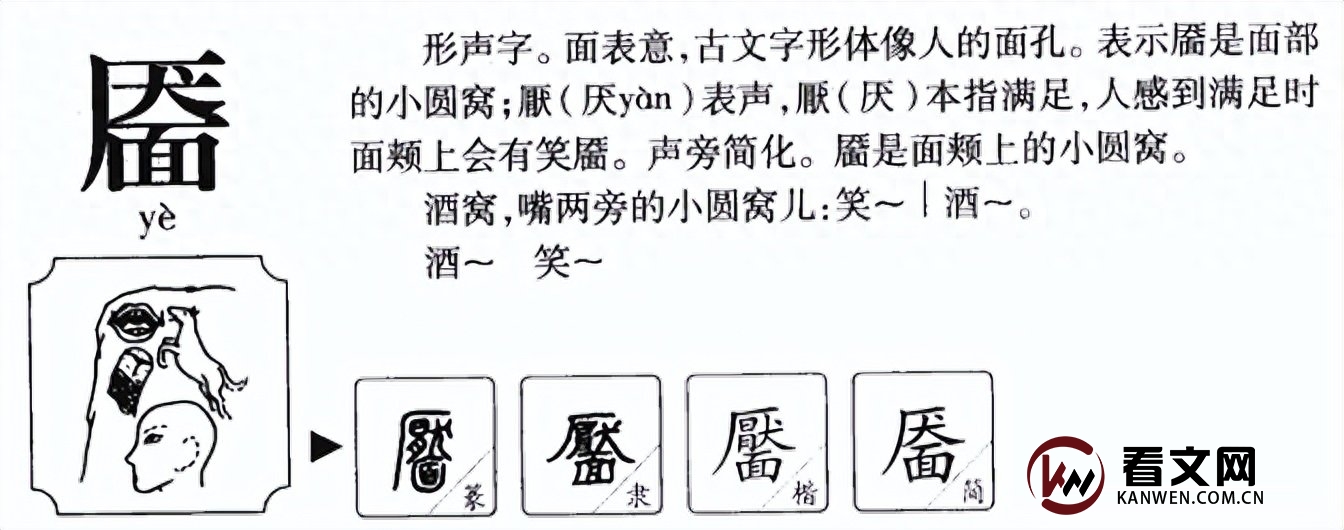 靥
yè
形声字。面表意，古文字形体像人的面孔。表示靥是面部
的小圆窝；厭（厌yàn）表声，厭（厌）本指满足，人感到满足时
面颊上会有笑靥。声旁简化。靥是面颊上的小圆窝。
酒窝，嘴两旁的小圆窝儿：笑～｜酒～。
酒～　笑～
靨 篆
靨 隶
靨 楷
靥 简
看文网
KANWEN.COM.CN